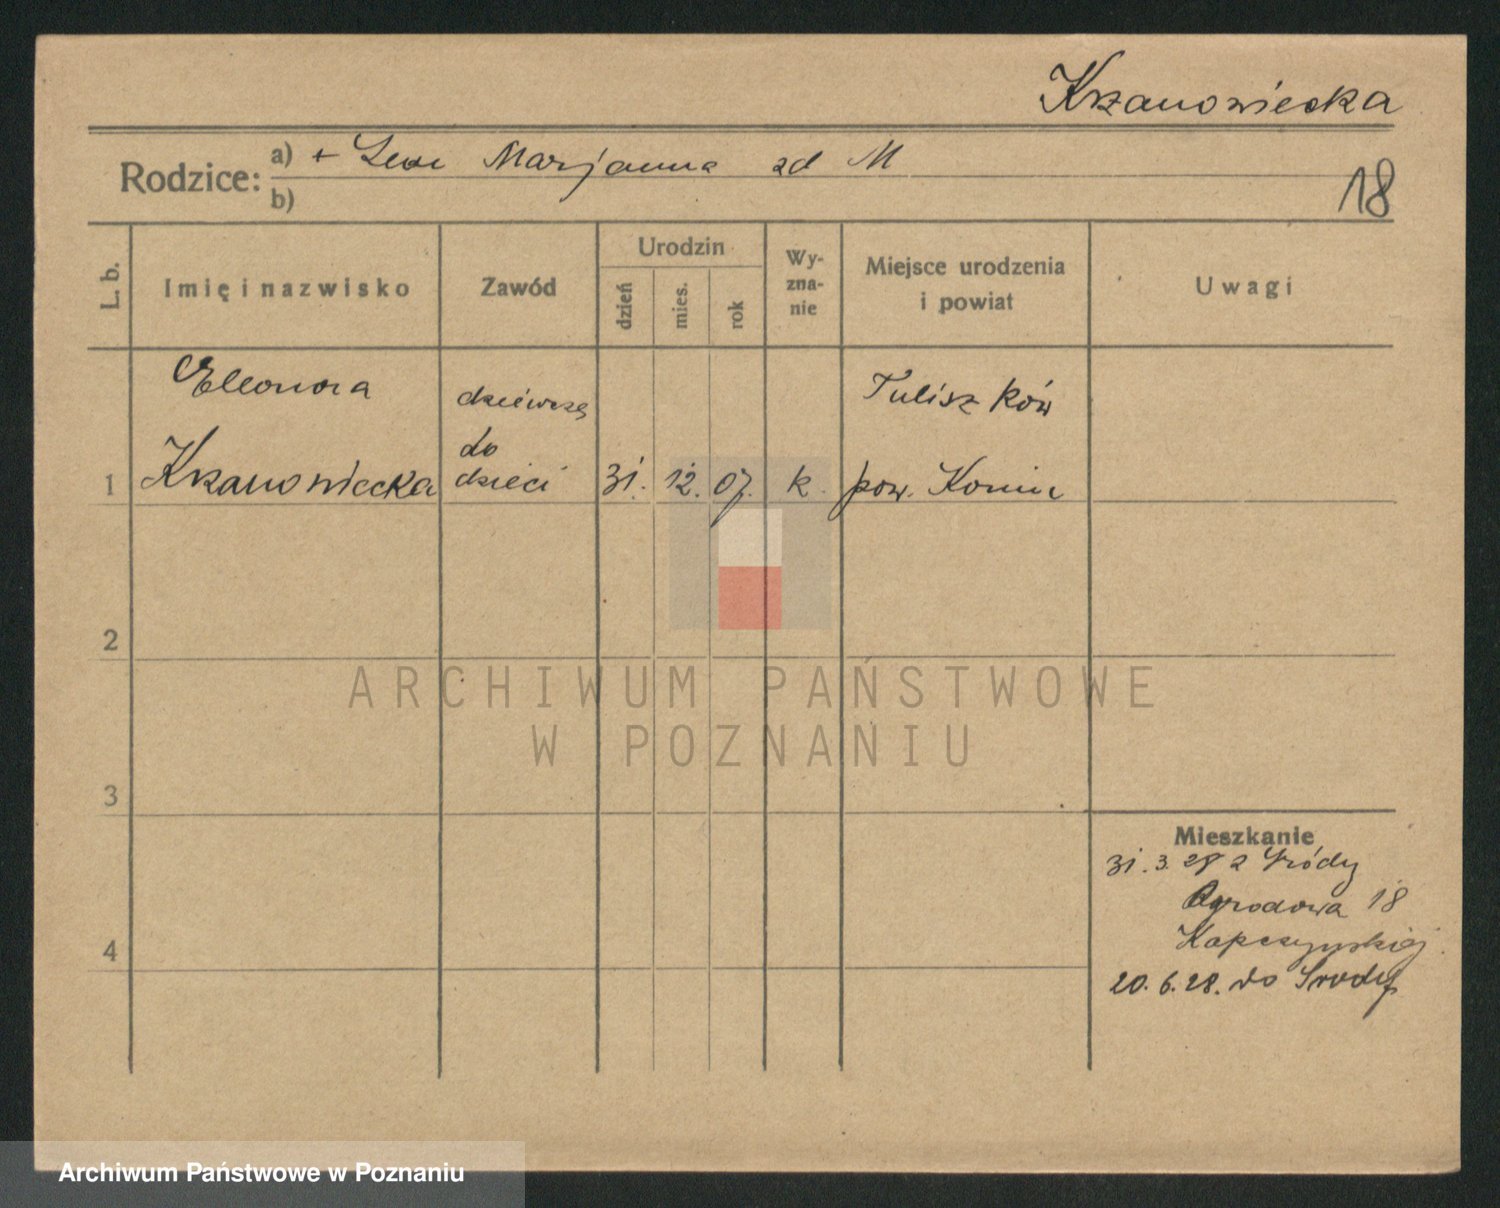 Krzanowiecka
Rodzice: a) + Leon Marjanna zd M
b)
18
L. b. Imię i nazwisko Zawód Urodzin dzień mies. rok Wy-zna-nie Miejsce urodzenia i powiat Uwagi
Eleonora dziewczę Tuliszków
do
1 Krzanowiecka dzieci 31. 12. 07. k. pow. Konin
2
ARCHIWUM PAŃSTWOWE
W POZNANIU
3
Mieszkanie
31. 3. 28 z Środy
Ogrodowa 18
Kapczyńskiej.
4
20. 6. 28. do Środy
Archiwum Państwowe w Poznaniu